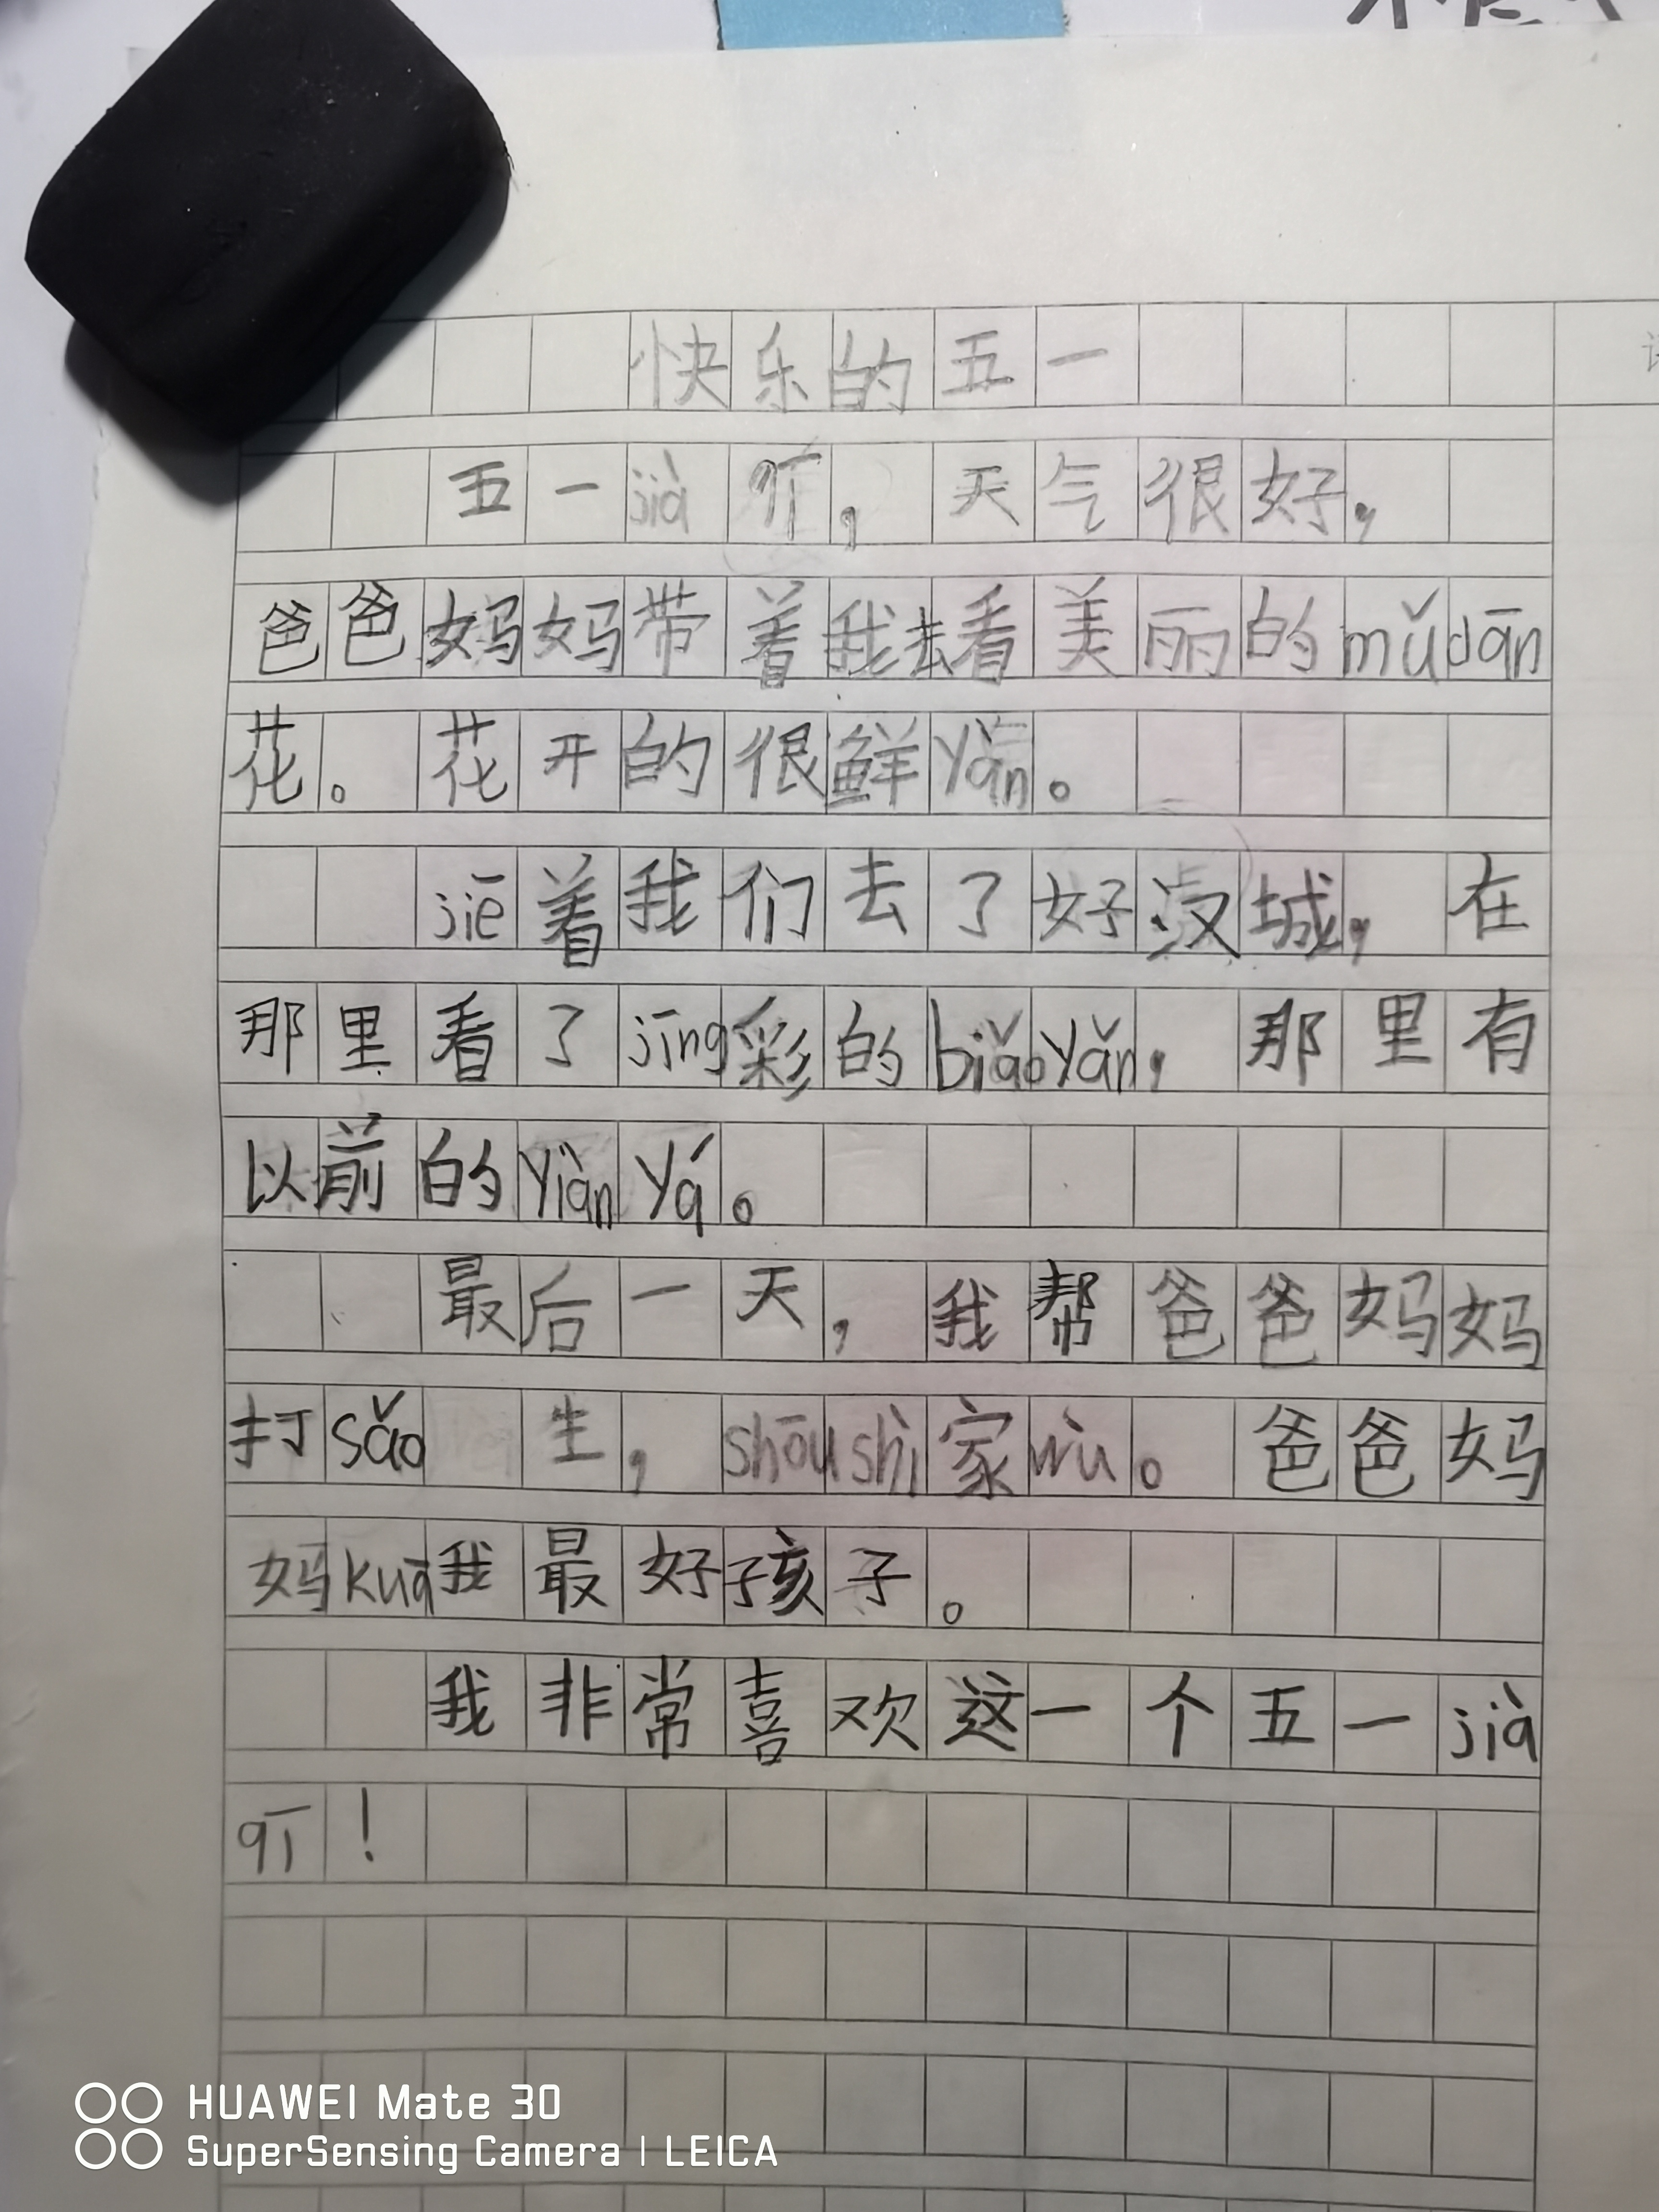 快乐的五一
五一jià qī，天气很好，
爸爸妈妈带着我去看美丽的mǔdān
花。花开的很鲜yàn。
jiē着我们去了好汉城，在
那里看了jīng彩的biǎoyǎn，那里有
以前的yiàn yá。
最后一天，我帮爸爸妈妈
打sǎo 生，shōushì家wù。爸爸妈
妈kuā我最好孩子。
我非常喜欢这一个五一jià
qī！
HUAWEI Mate 30
SuperSensing Camera | LEICA